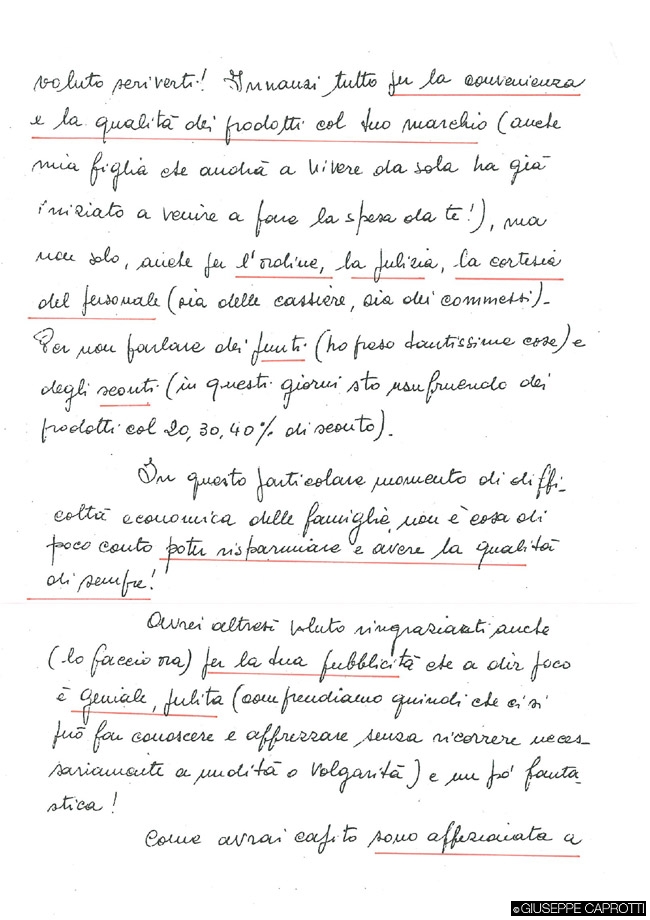 voluto scriverti! Innanzi tutto per la convenienza
e la qualità dei prodotti col tuo marchio (anche
mia figlia che andrà a vivere da sola ha già
iniziato a venire a fare la spesa da te!), ma
non solo, anche per l'ordine, la pulizia, la cortesia
del personale (sia delle cassiere, sia dei commessi).
Per non parlare dei punti (ho preso tantissime cose) e
degli sconti (in questi giorni sto usufruendo dei
prodotti col 20, 30, 40% di sconto).
In questo particolare momento di diffi-
coltà economica delle famiglie, non è cosa di
poco conto poter risparmiare e avere la qualità
di sempre!
Avrei altresì voluto ringraziarti anche
(lo faccio ora) per la tua pubblicità che a dir poco
è geniale, pulita (comprendiamo quindi che ci si
può far conoscere e apprezzare senza ricorrere neces-
sariamente a nudità o volgarità) e un pò fanta-
stica!
Come avrai capito sono affezionata a
©GIUSEPPE CAPROTTI